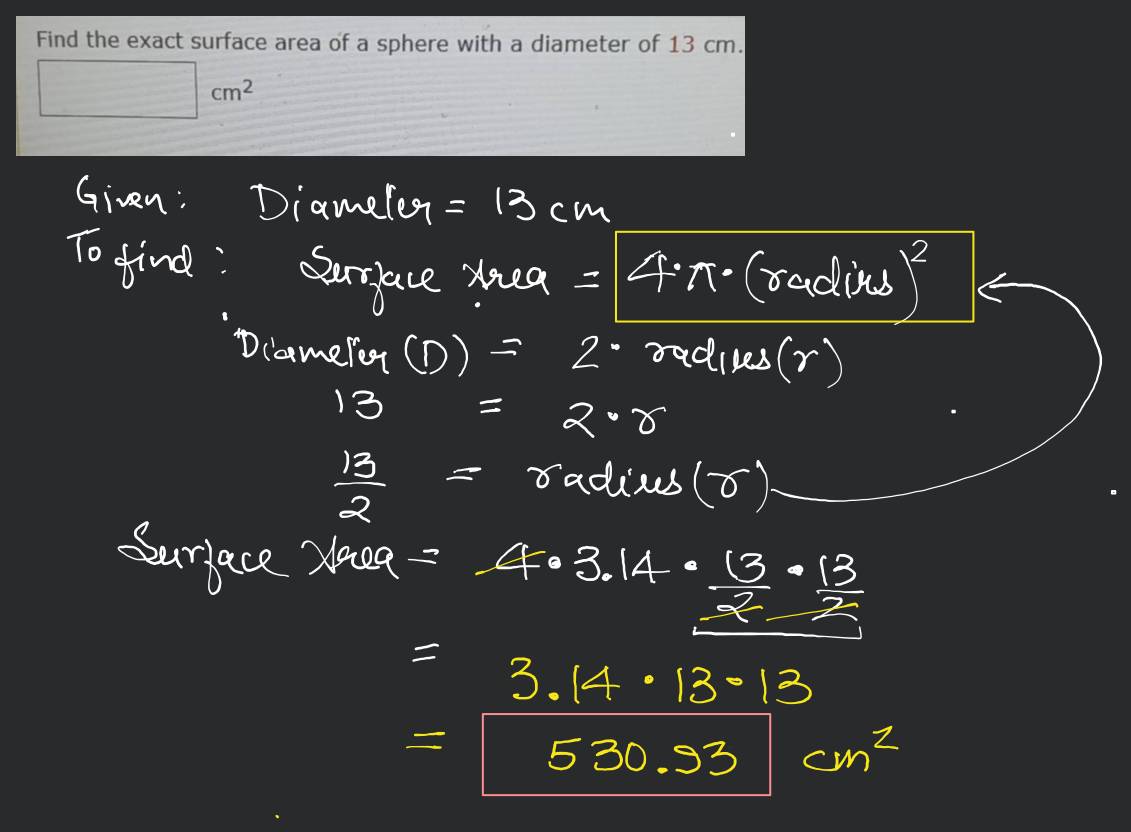 Find the exact surface area of a sphere with a diameter of 13 cm.
cm²
Given: Diameter = 13 cm
To find: Surface Area = 4·π·(radius)²
Diameter (D) = 2· radius(r)
13 = 2·r
13/2 = radius(r)
Surface Area = 4·3.14·13/2·13/2
= 3.14·13·13
= 530.93 cm²